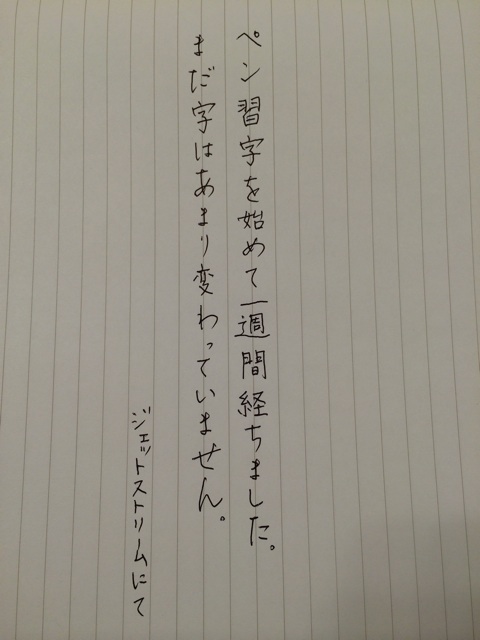 ペン習字を始めて一週間経ちました。
まだ字はあまり変わっていません。
ジェットストリームにて